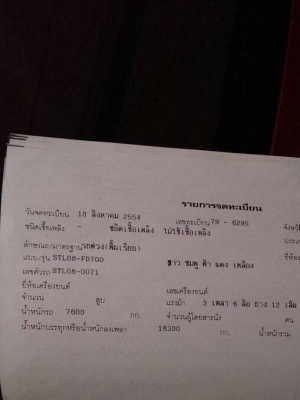 รายการจดทะเบียน
วันจดทะเบียน 18 สิงหาคม 2554 เลขทะเบียน 79 - 6295 จังหวั
ชนิดเชื้อเพลิง - ชนิดเชื้อเพลิง ไม่ใช้เชื้อเพลิง ประเภ
ลักษณะ/มาตรฐาน
แบบ/รุ่น STL08-FD700 ขาว ชมพู ฟ้า แดง เหลือง
เลขตัวรถ STL08-0071
ยี่ห้อเครื่องยนต์ เลขเครื่องยนต์
จำนวน สูบ แรงม้า 3 เพลา 6 ล้อ ยาง 12 เส้น
น้ำหนักรถ 7600 กก. จำนวนผู้โดยสารนั่ง คน
น้ำหนักบรรทุกหรือน้ำหนักลงเพลา 18300 กก. น้ำหนักรวม